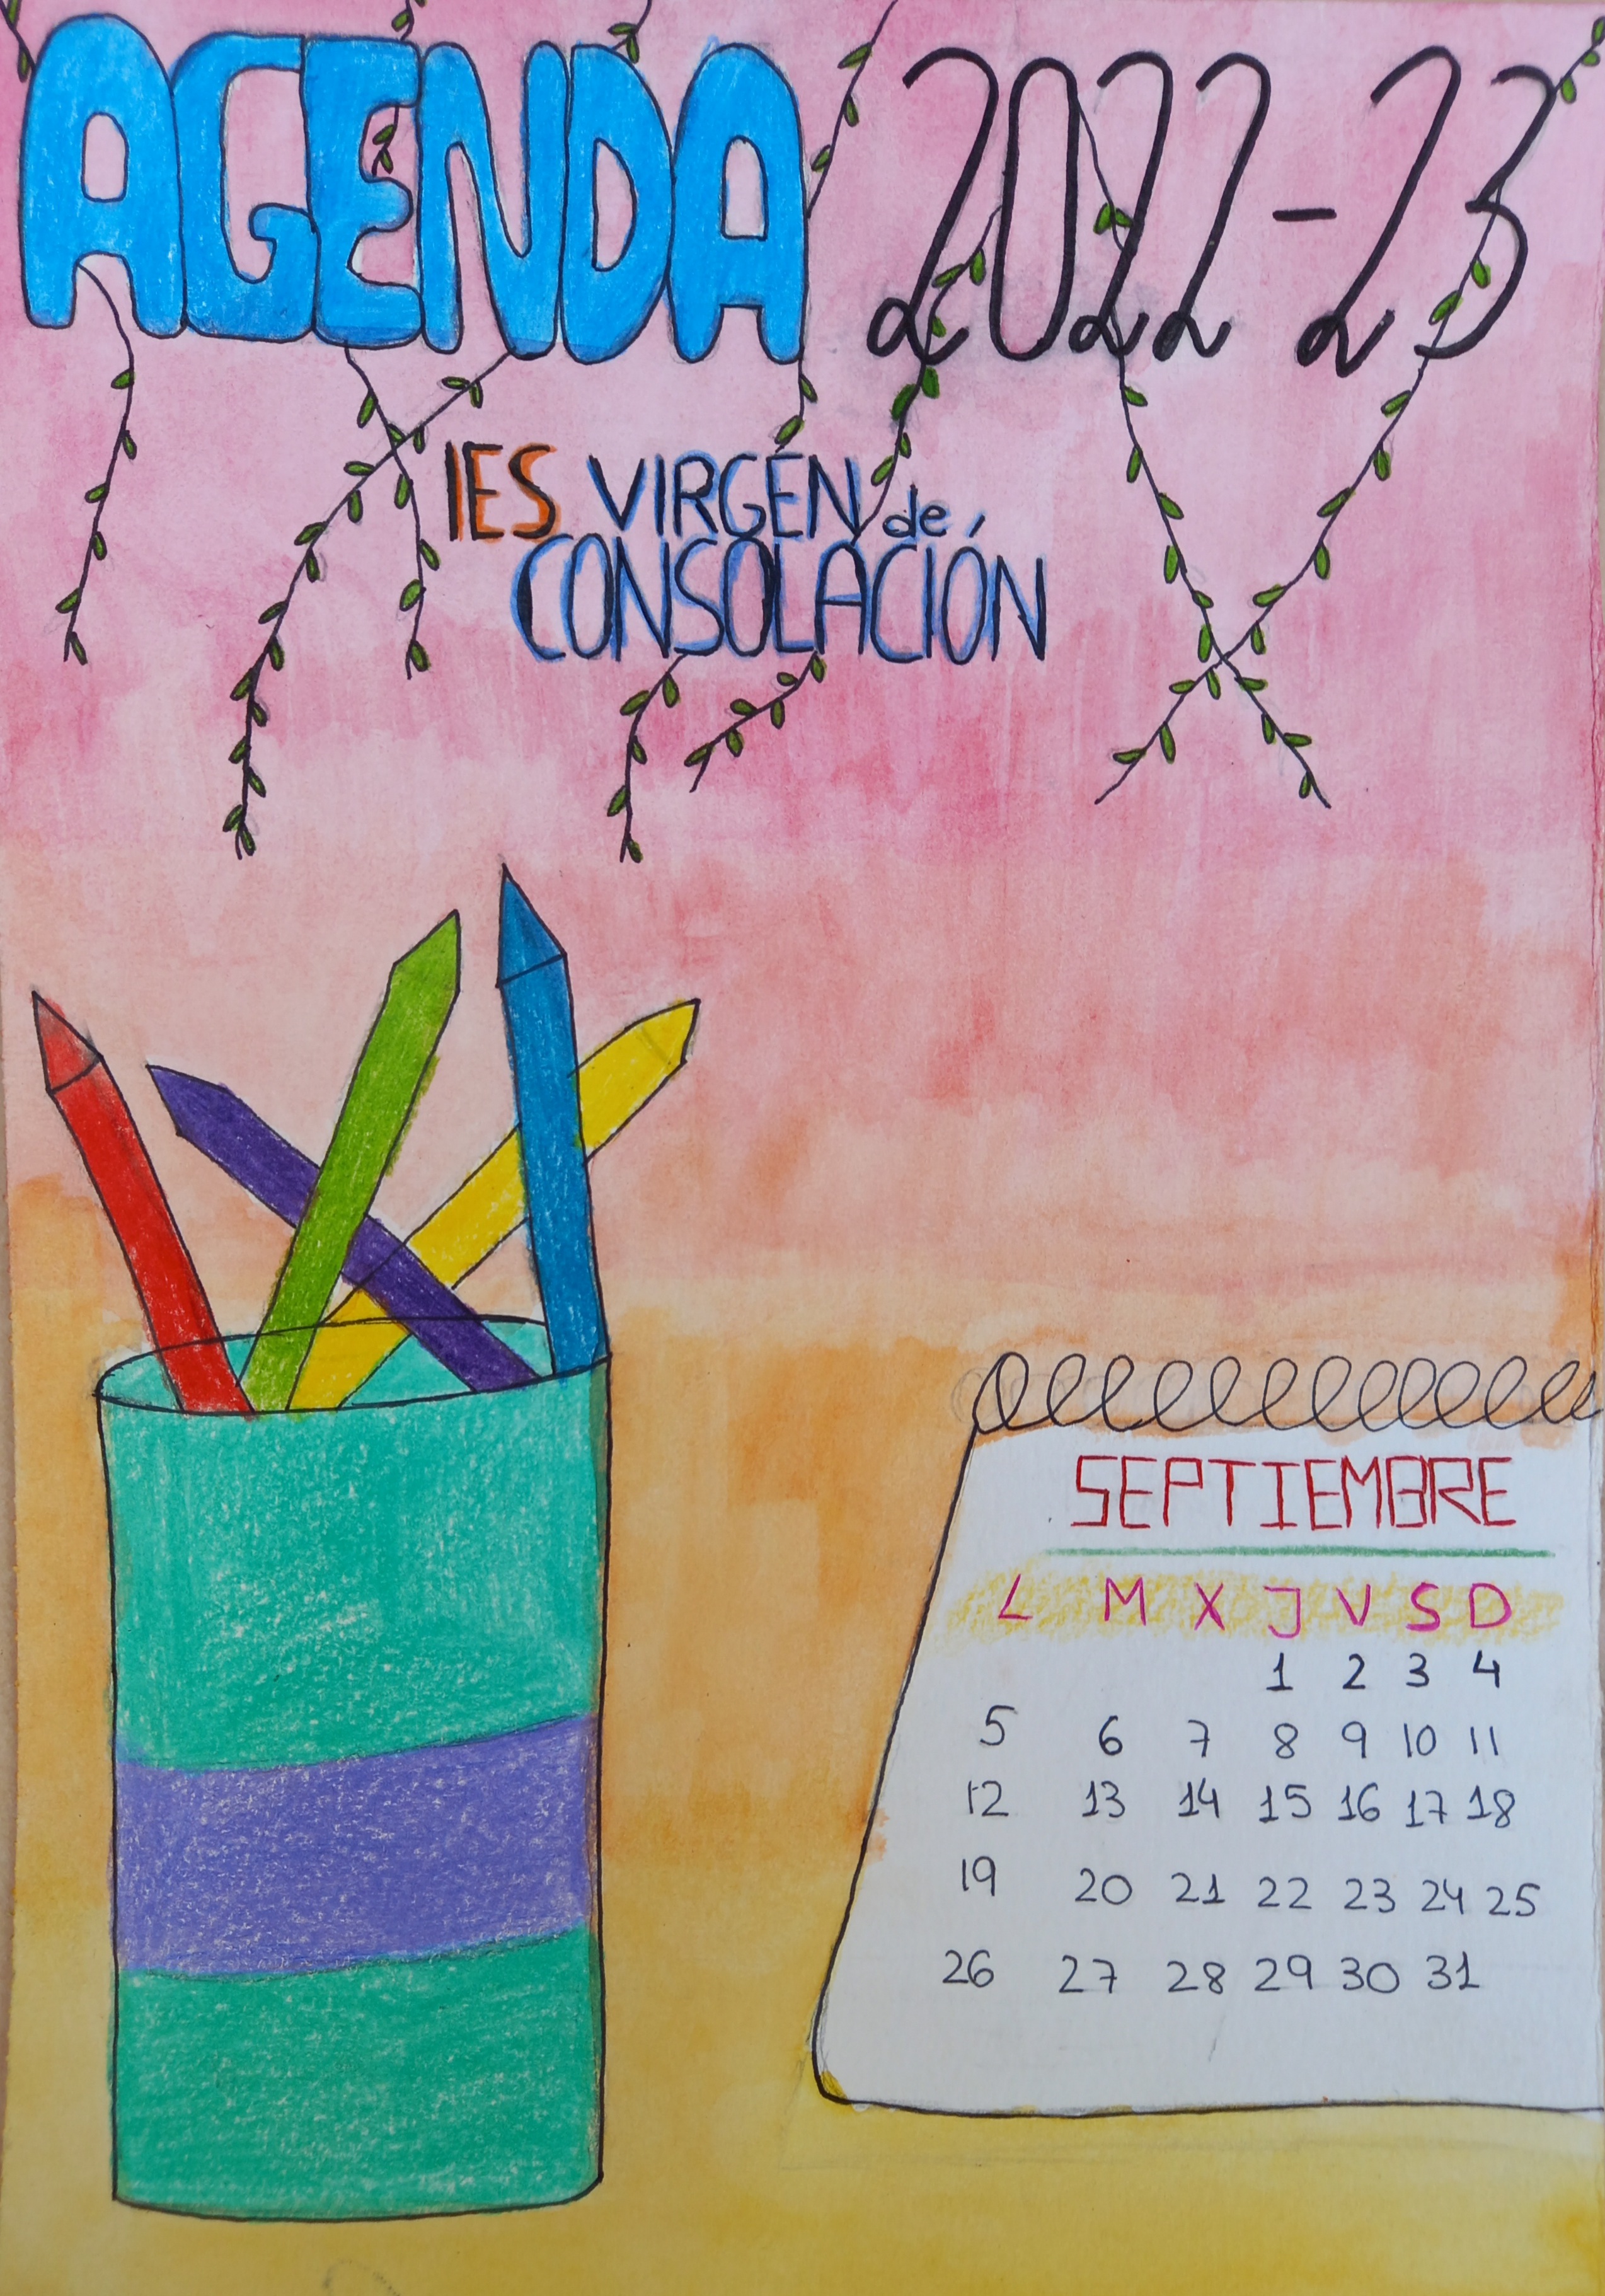 AGENDA 2022-23
IES VIRGÉN de
CONSOLACIÓN
SEPTIEMBRE
L M X J V S D
1 2 3 4
5 6 7 8 9 10 11
12 13 14 15 16 17 18
19 20 21 22 23 24 25
26 27 28 29 30 31